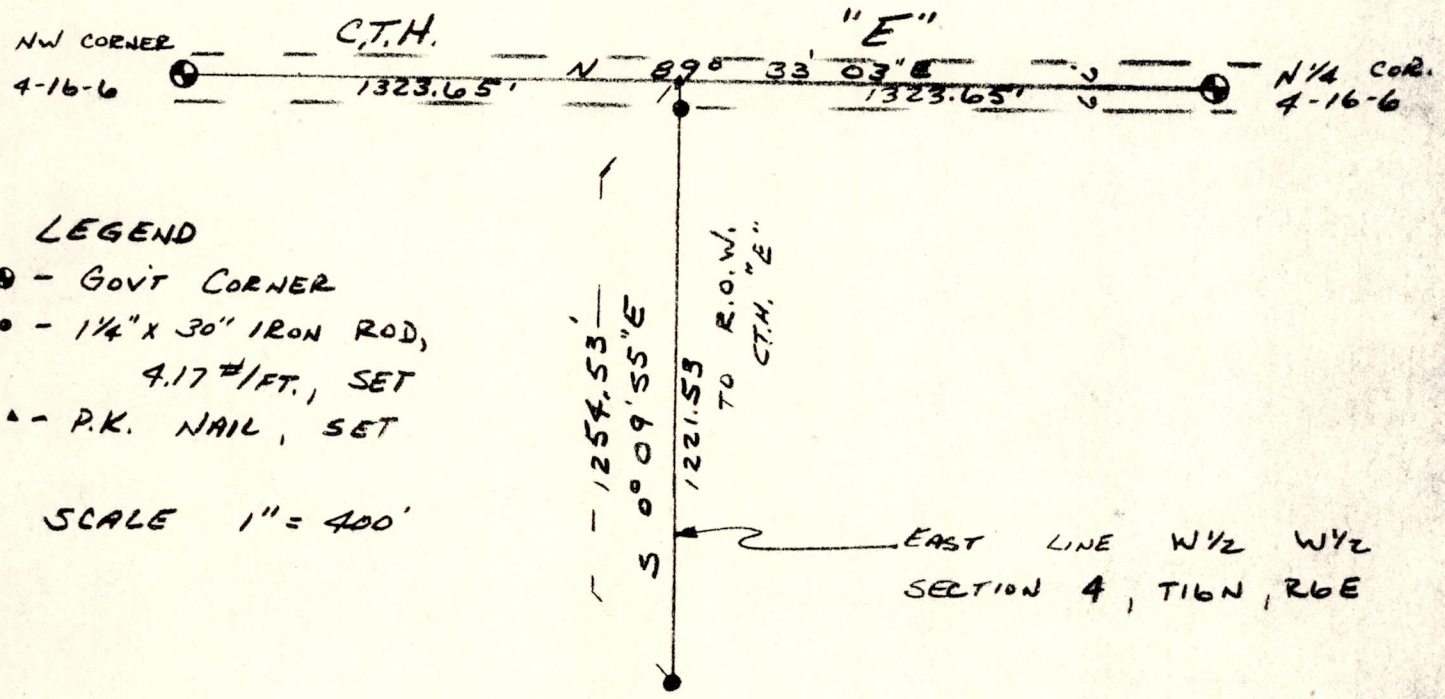 C.T.H. "E"
NW CORNER
4-16-6
N 89° 33' 03" E
1323.65'
1323.65'
N 1/4 COR.
4-16-6
LEGEND
- GOV'T CORNER
- 1 1/4" X 30" IRON ROD,
4.17 #/FT., SET
- P.K. NAIL, SET
SCALE 1" = 400'
1254.53'
S 0° 09' 55" E
1221.53
TO R.O.W.
C.T.H. "E"
EAST LINE W 1/2 W 1/2
SECTION 4, T16N, R6E